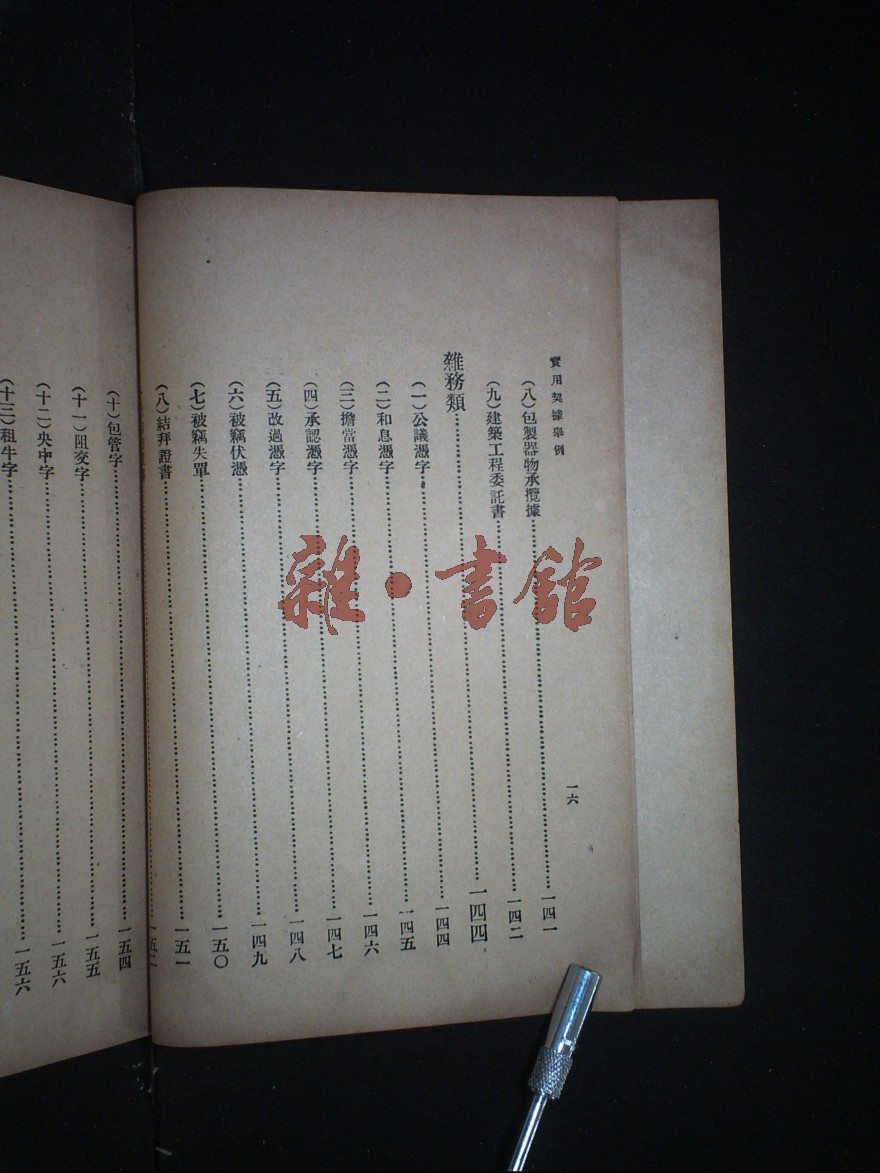 實用契據舉例
(八)包製器物承攬據……一四一
(九)建築工程委託書……一四二
雜務類……一四四
(一)公議憑字……一四四
(二)和息憑字……一四五
(三)擔當憑字……一四六
(四)承認憑字……一四七
(五)改過憑字……一四八
(六)被竊伏憑……一四九
(七)被竊失單……一五〇
(八)結拜證書……一五一
一五二
(十)包管字……一五四
(十一)阻交字……一五五
(十二)央中字……一五六
(十三)租牛字……一五六
一六
雜·書館